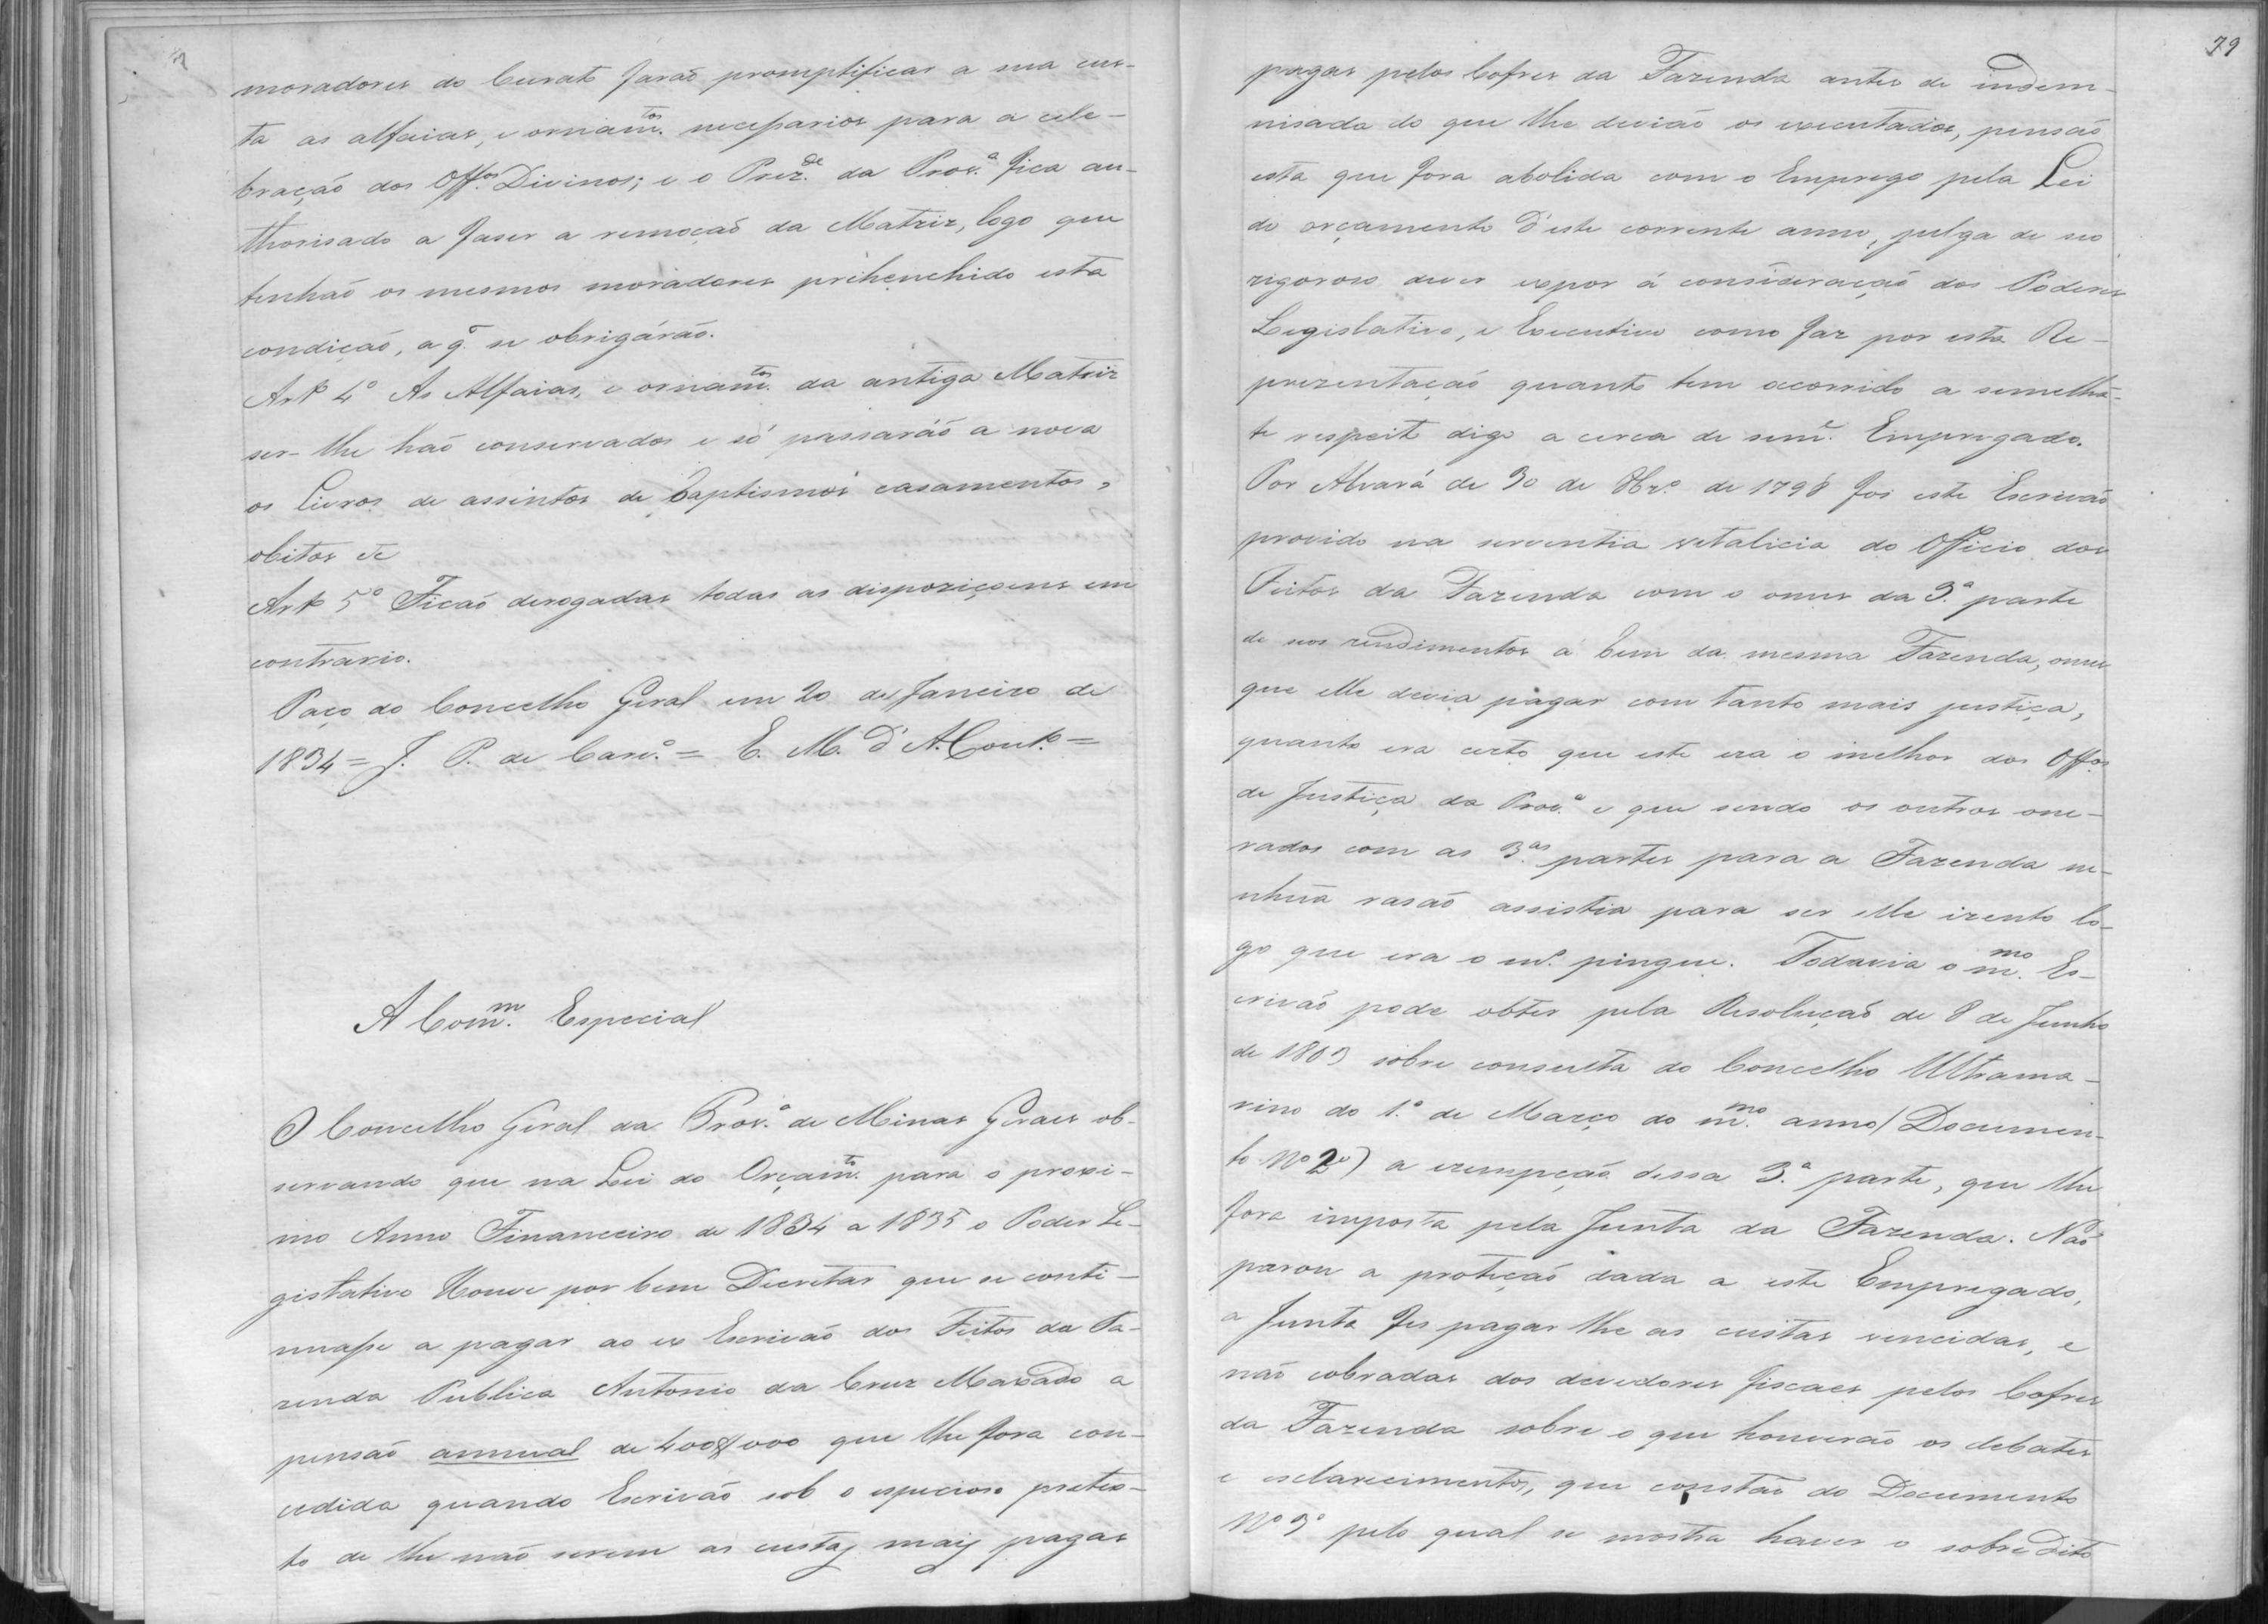 moradores do Curato farão promptificar a sua cus-
ta as alfaias, e ornamtos. necessarios para a cele-
bração dos Offos. Divinos; e o Prezde. da Prova. fica au-
thorisado a faser a remoção da Matriz, logo que
tenhão os mesmos moradores prehenchido esta
condição, a q̃ se obrigárão.
Arto 4º As Alfaias, e ornamtos. da antiga Matriz
ser-lhe hão conservados e só passaráõ a nova
os Livros de assintos de baptismos casamentos,
obitos &c
Arto 5º Ficão derogadas todas as dispoziçoens em
contrario.
Paço do Concelho Geral em 20 de Janeiro de
1834 = J. P. de Carvo. = E. M. d'A. Couto. =
A Comm. Especial
O Concelho Geral da Prova. de Minas Geraes ob-
servando que na Lei do Orçamto. para o proxi-
mo Anno Financeiro de 1834 a 1835 o Poder Le-
gislativo Houve por bem Decretar que se conti-
nuasse a pagar ao ex Escrivão dos Feitos da Fa-
zenda Publica Antonio da Cruz Maxado a
pensão annual de 400$000 que lhe fora con-
cedida quando Escrivão sob o especioso pretex-
to de lhe não serem as custas mais pagas
79
pagas pelos Cofres da Fazenda antes de indem-
nisada do que lhe devião os executados, pensão
esta que fora abolida com o Emprego pela Lei
do orçamento d'este corrente anno, julga de seo
rigoroso dever expor á consideração dos Poderes
Legislativo, e Executivo como faz por esta Re-
prezentação quanto tem occorrido a semelhã-
te respeito digo a cerca de seme. Empregado.
Por Alvará de 30 de 8bro. de 1798 foi este Escrivão
provido na serventia vetalicia do Officio dos
Feitos da Fazenda com o onus da 3.ª parte
de seos rendimentos a bem da mesma Fazenda, onus
que elle devia pagar com tanto mais justiça,
quanto era certo que este era o melhor dos Offos
de Justiça da Prova. e que sendo os outros one-
rados com as 3.as partes para a Fazenda ne-
nhũa rasão assistia para ser elle izento lo-
go que era o ms. pingue. Todavia o mmo. Es-
crivão pode obter pela Resolução de 8 de Junho
de 1803 sobre consulta do Concelho Ultrama-
rino do 1.º de Março do mmo. anno (Documen-
to Nº 2º) a izempção dessa 3.ª parte, que lhe
fora imposta pela Junta da Fazenda. Não
parou a proteção dada a este Empregado,
a Junta fes pagar lhe as custas vencidas, e
não cobradas dos devedores fiscaes pelos Cofres
da Fazenda sobre o que houverão os debates
e esclarecimentos, que constão do Documento
Nº 3º pelo qual se mostra haver o sobredito